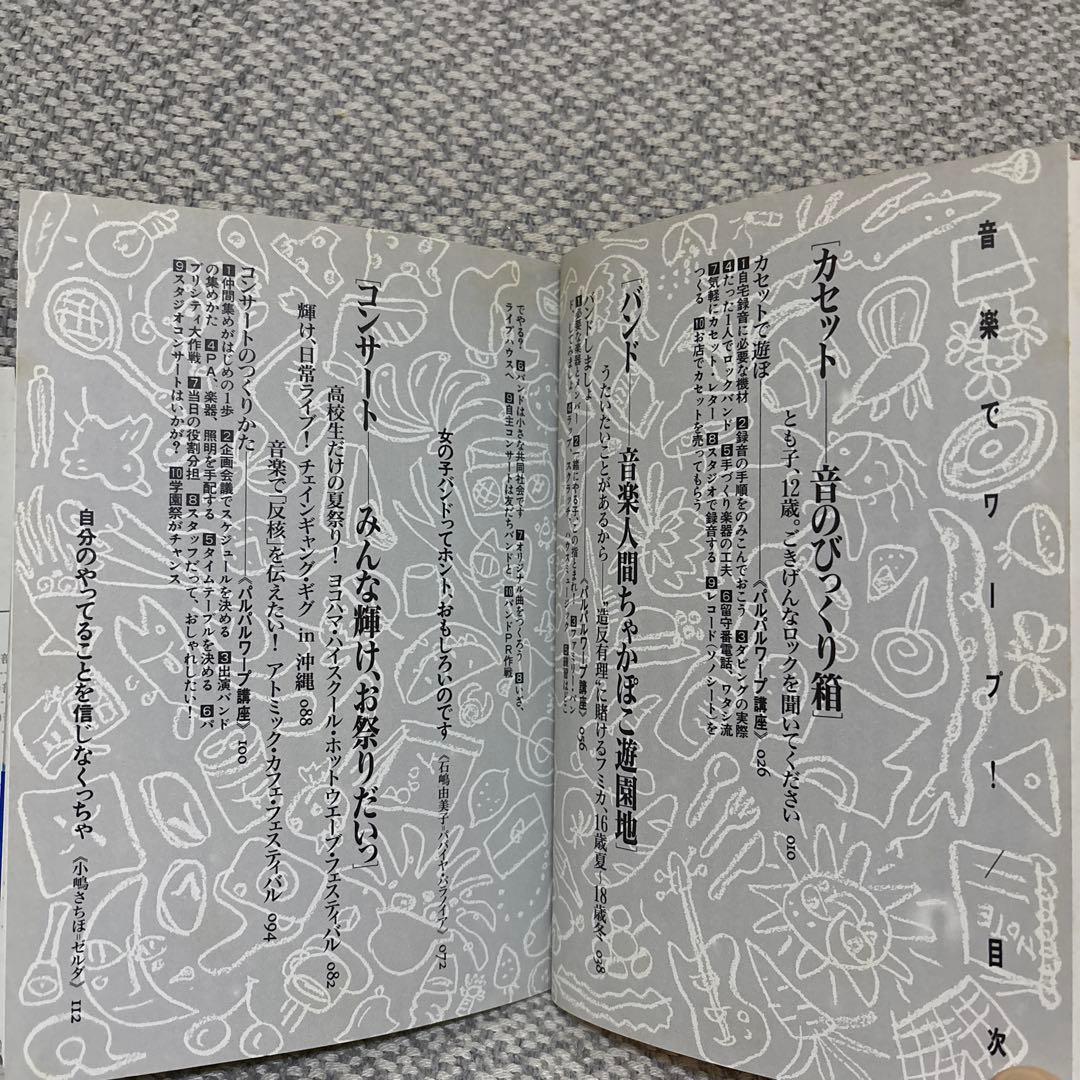 音楽でワープ！／目次
［カセット——音のびっくり箱］
とも子、12歳。ごきげんなロックを聞いてください 010
カセットで遊ぼ——《パルパルワープ講座》 026
1自宅録音に必要な機材 2録音の手順をのみこんでおこう 3ダビングの実際
4たった1人でロックバンド 5手づくり楽器の工夫 6留守番電話、ワタシ流
7気軽にカセット・レター 8スタジオで録音する 9レコード（ソノシート）を
つくる 10お店でカセットを売ってもらう
［バンド——音楽人間ちゃかぽこ遊園地］
うたいたいことがあるから——“造反有理”に賭けるフミカ、16歳夏—18歳冬 038
バンドしましょ——《パルパルワープ講座》 056
1必要な楽器とメンバー 2一緒にやる子、この指とまれ！
でやる？ 6バンドは小さな共同社会です 7オリジナル曲をつくろう 8いざ、
ライブハウスへ 9自主コンサートは友だちバンドと 10バンドPR作戦
女の子バンドってホント、おもしろいのです 《石嶋由美子＝パパイヤ・パラノイア》 072
［コンサート——みんな輝け、お祭りだいっ］
高校生だけの夏祭り！ ヨコハマ・ハイスクール・ホットウエーブ・フェスティバル 082
輝け、日常ライブ！ チェインギャング・ギグ in 沖縄 088
音楽で「反核」を伝えたい！ アトミック・カフェ・フェスティバル 094
コンサートのつくりかた——《パルパルワープ講座》 100
1仲間集めがはじめの1歩 2企画会議でスケジュールを決める 3出演バンド
の集めかた 4PA、楽器、照明を手配する 5タイムテーブルを決める 6パ
ブリシティ大作戦 7当日の役割分担 8スタッフだって、おしゃれしたい！
9スタジオコンサートはいかが？ 10学園祭がチャンス
自分のやってることを信じなくっちゃ 《小嶋さちほ＝ゼルダ》 112